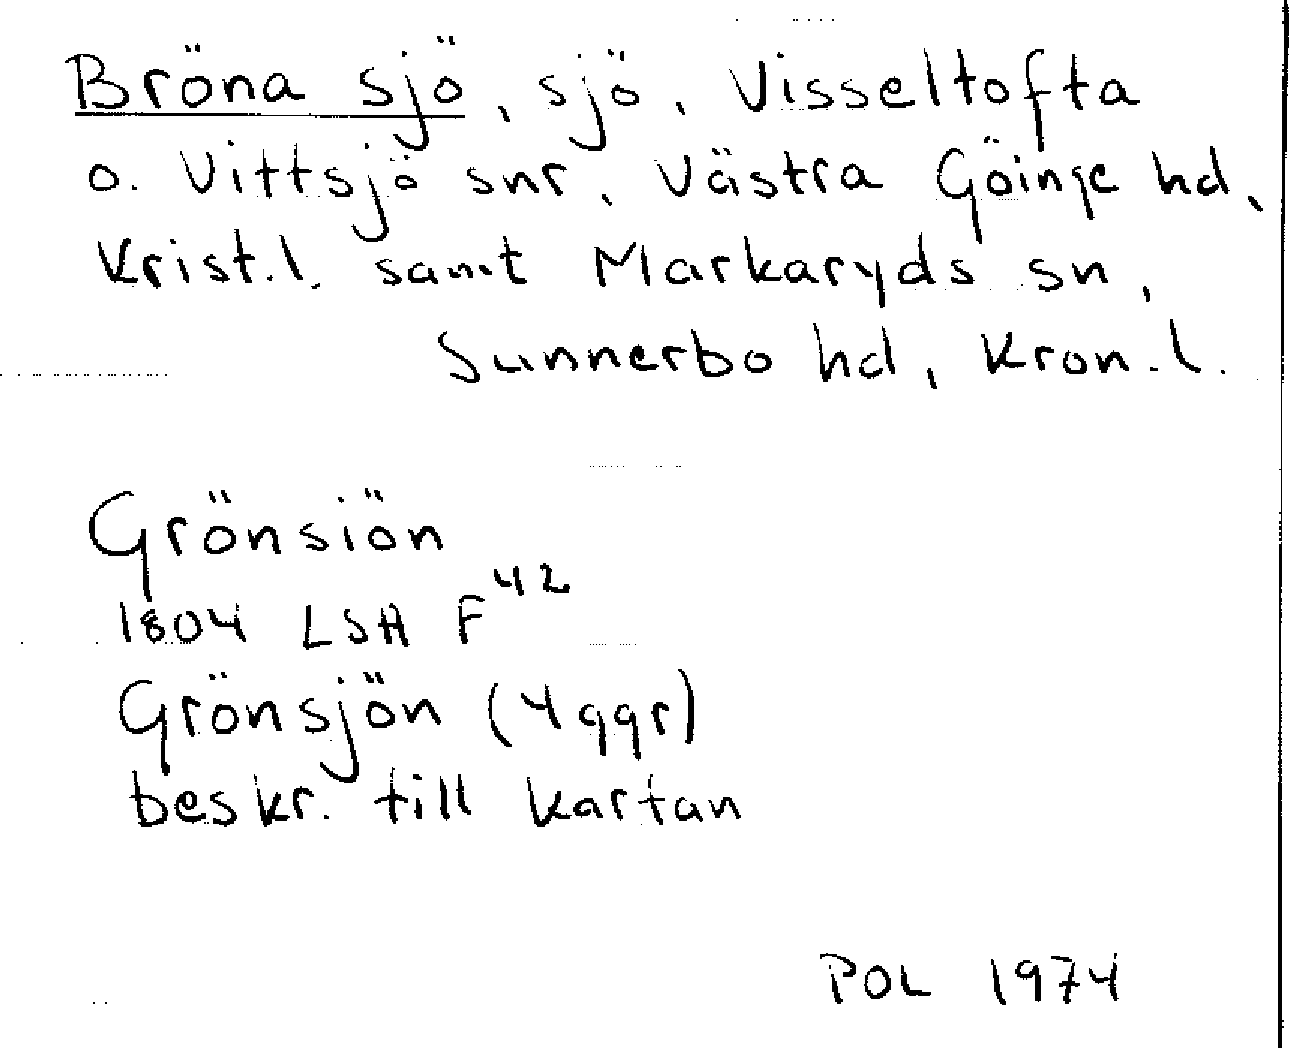 Bröna sjö, sjö, Visseltofta
o. Vittsjö snr, Västra Göinge hd,
Krist.l. samt Markaryds sn,
Sunnerbo hd, Kron.l.
Grönsiön
1804 LSH F42
Grönsjön (4 ggr)
beskr. till kartan
POL 1974